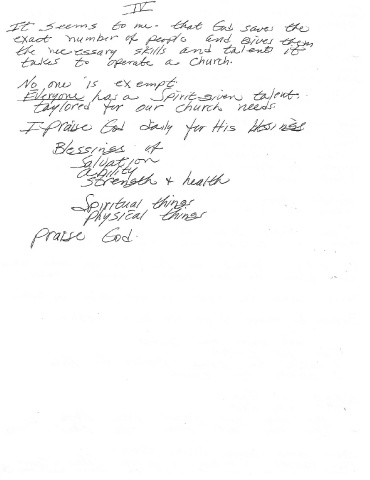 IV
It seems to me - that God saves the
exact number of people and gives them
the necessary skills and talent it
takes to operate a church.
No one is exempt.
Everyone has a Spirit given talent
taylored for our church needs.
I praise God daily for His
Blessings of
Salvation
ability
Strength + health
Spiritual things
Physical things
praise God.